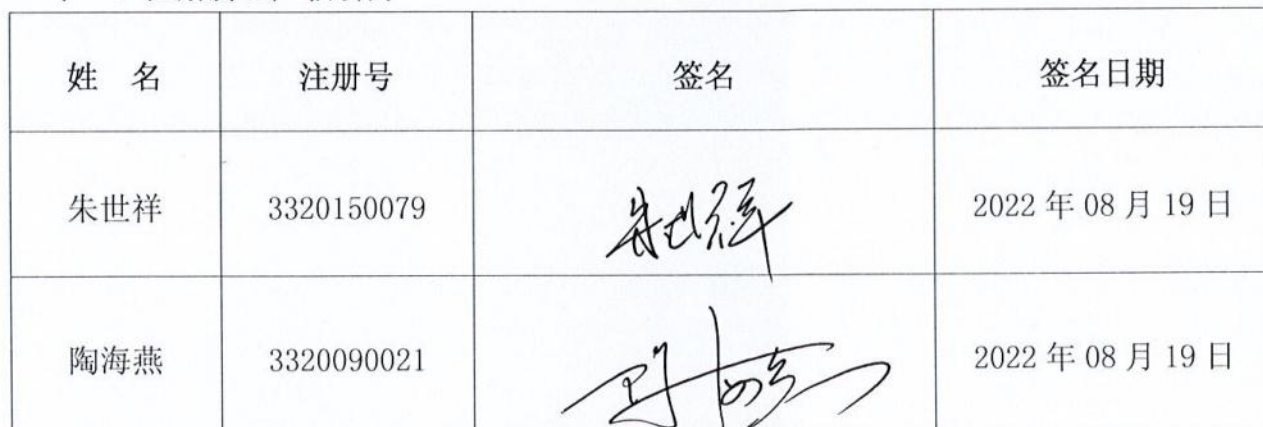 姓 名 注册号 签名 签名日期
朱世祥 3320150079 朱世祥 2022 年 08 月 19 日
陶海燕 3320090021 2022 年 08 月 19 日